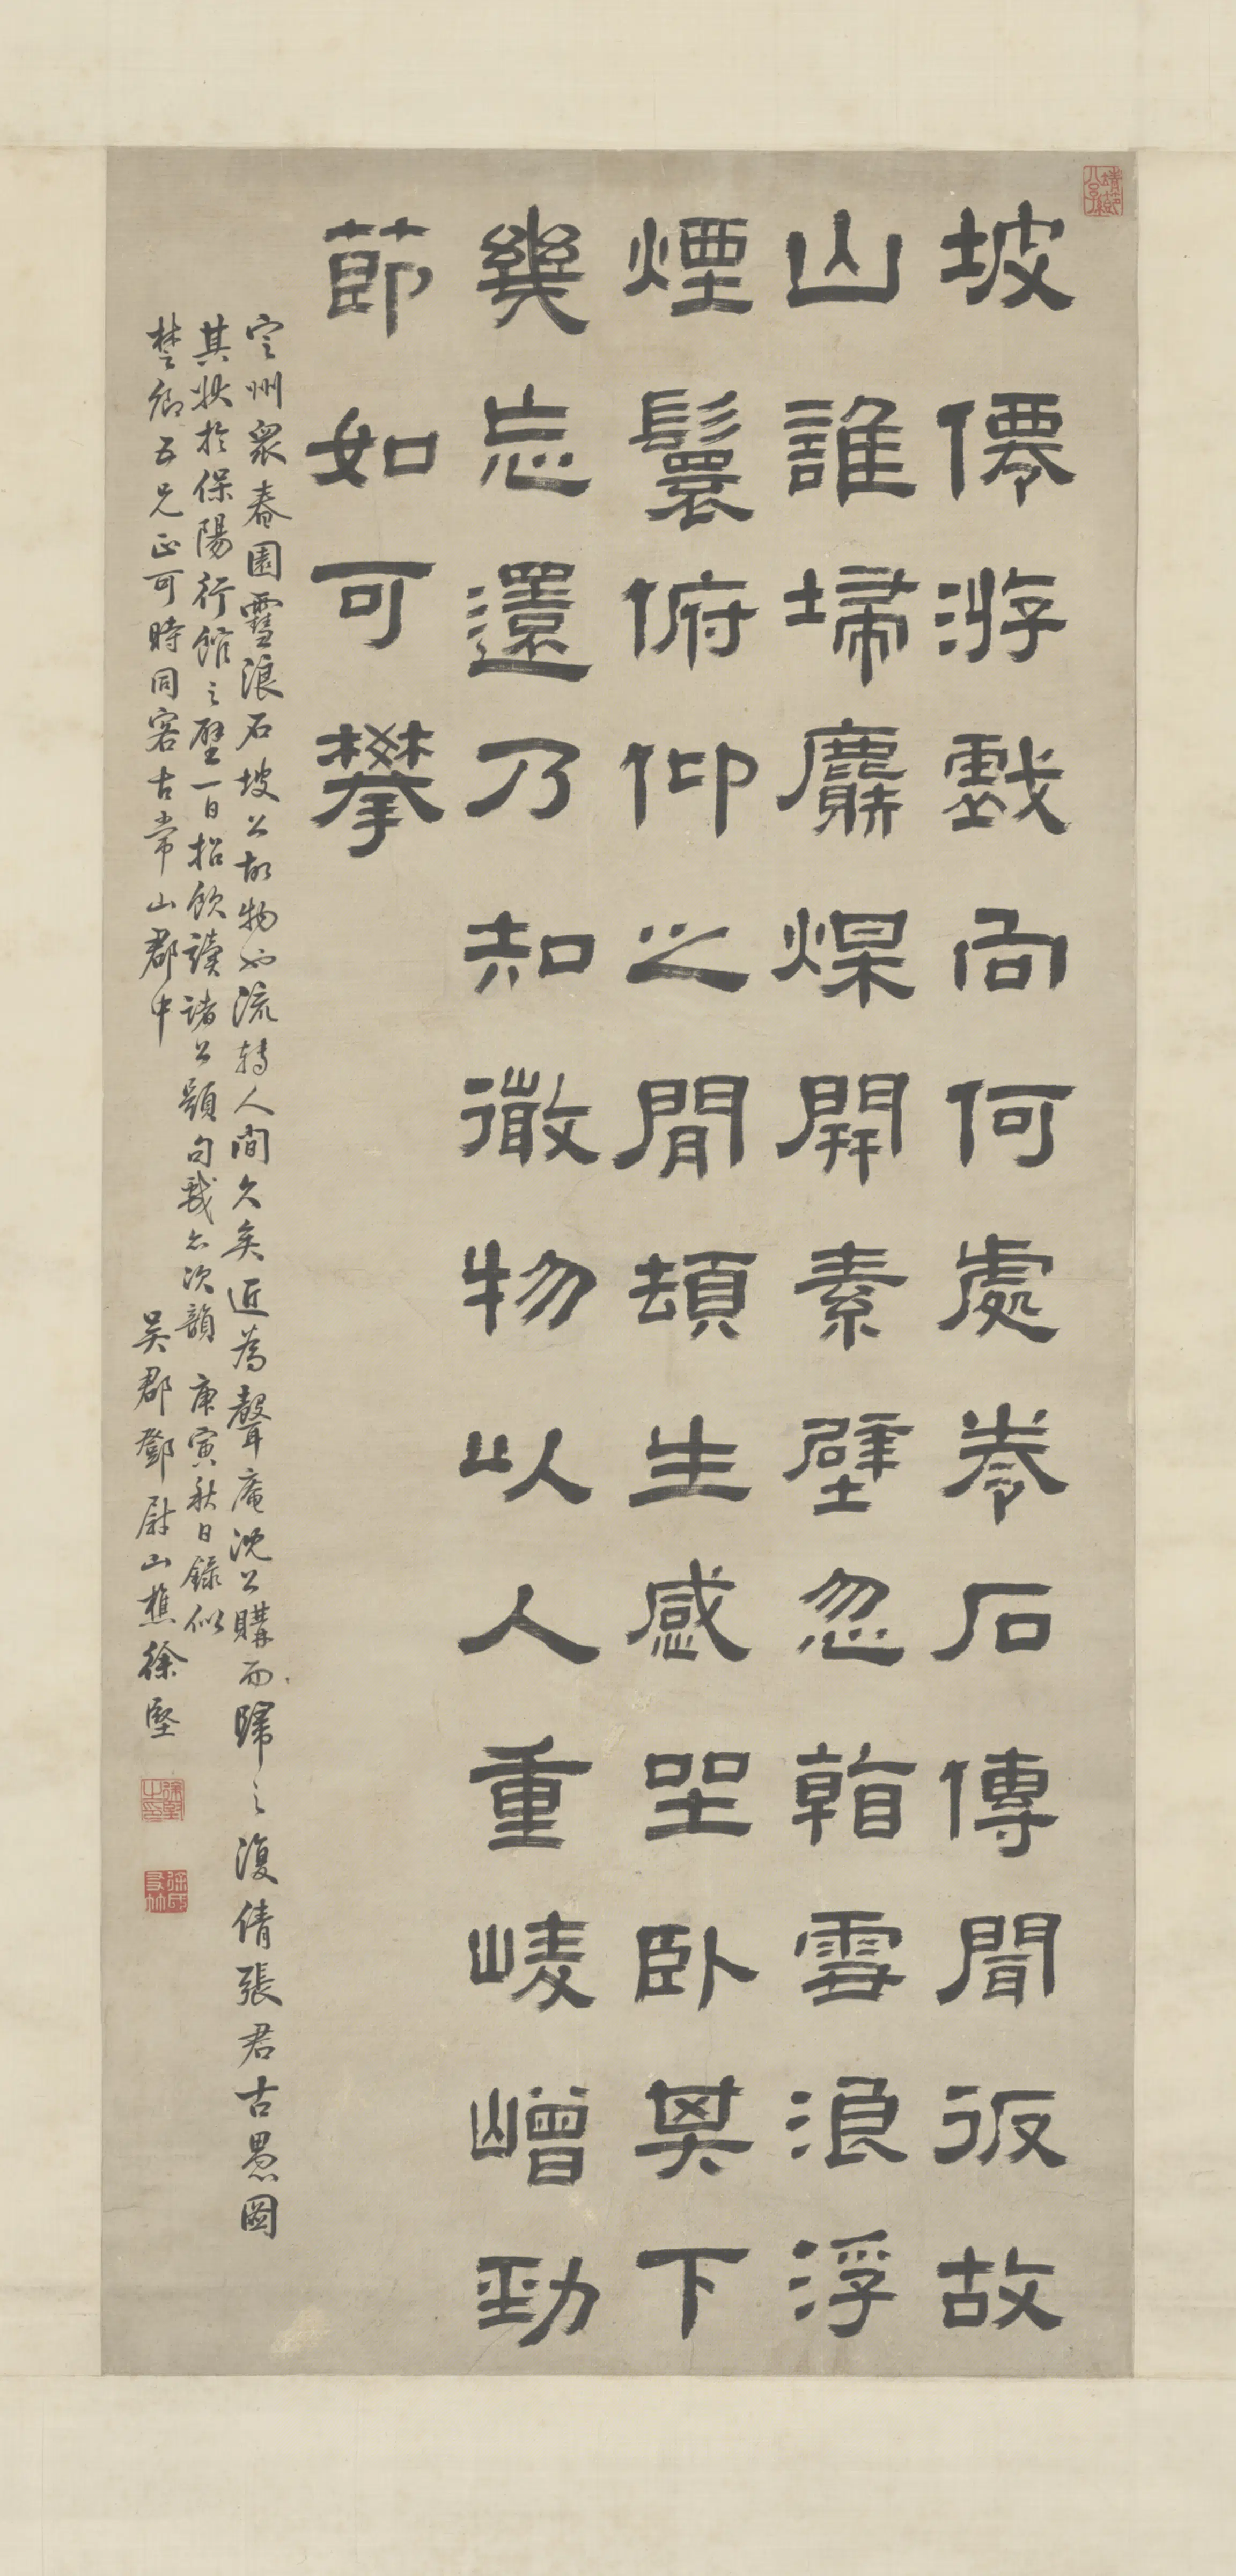 坡僊游戲向何處拳石傳聞返故
山誰埽麝煤開素壁忽翰雪浪浮
煙鬟俯仰之間頓生感坐臥其下
幾忘還乃知微物以人重崚嶒勁
節如可攀
定州衆春園雪浪石坡公故物也流轉人間久矣近為聲庵沈公購而歸之復倩張君古愚圖
其狀於保陽行館之壁一日招飲讀諸公題句戲亦次韻 庚寅秋日錄似
楚卿五兄正可時同客古常山郡中
吳郡鄧尉山樵徐堅